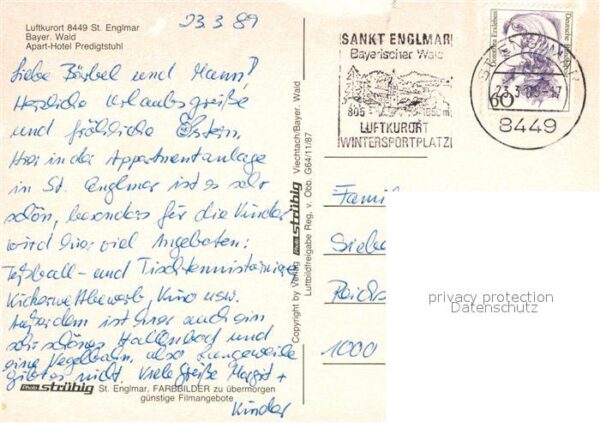 23.3.89
Luftkurort 8449 St. Englmar
Bayer. Wald
Apart-Hotel Predigtstuhl
Liebe Bärbel und Mann!
Herzliche Urlaubsgrüße
und fröhliche Ostern.
Hier in der Appartmentanlage
in St. Englmar ist es sehr
schön, besonders für die Kinder
wird hier viel Angeboten:
Fußball- und Tischtennisturniere
Kickerwettbewerb, Kino usw.
Außerdem ist hier auch ein
sehr schönes Hallenbad und
eine Kegelbahn, also Langeweile
gibt es nicht. Viele Grüße Margit +
Kinder
foto strübig St. Englmar, FARBBILDER zu übermorgen
günstige Filmangebote
Copyright by Verlag foto strübig Viechtach/Bayer. Wald
Luftbildfreigabe Reg. v. Obb. G64/11/87
SANKT ENGLMAR
Bayerischer Wald
805 - 1050 m
LUFTKURORT
WINTERSPORTPLATZ
Deutsche
60
23.3.89-17
8449
Famil
Siebe
Reichs
1000
privacy protection
Datenschutz